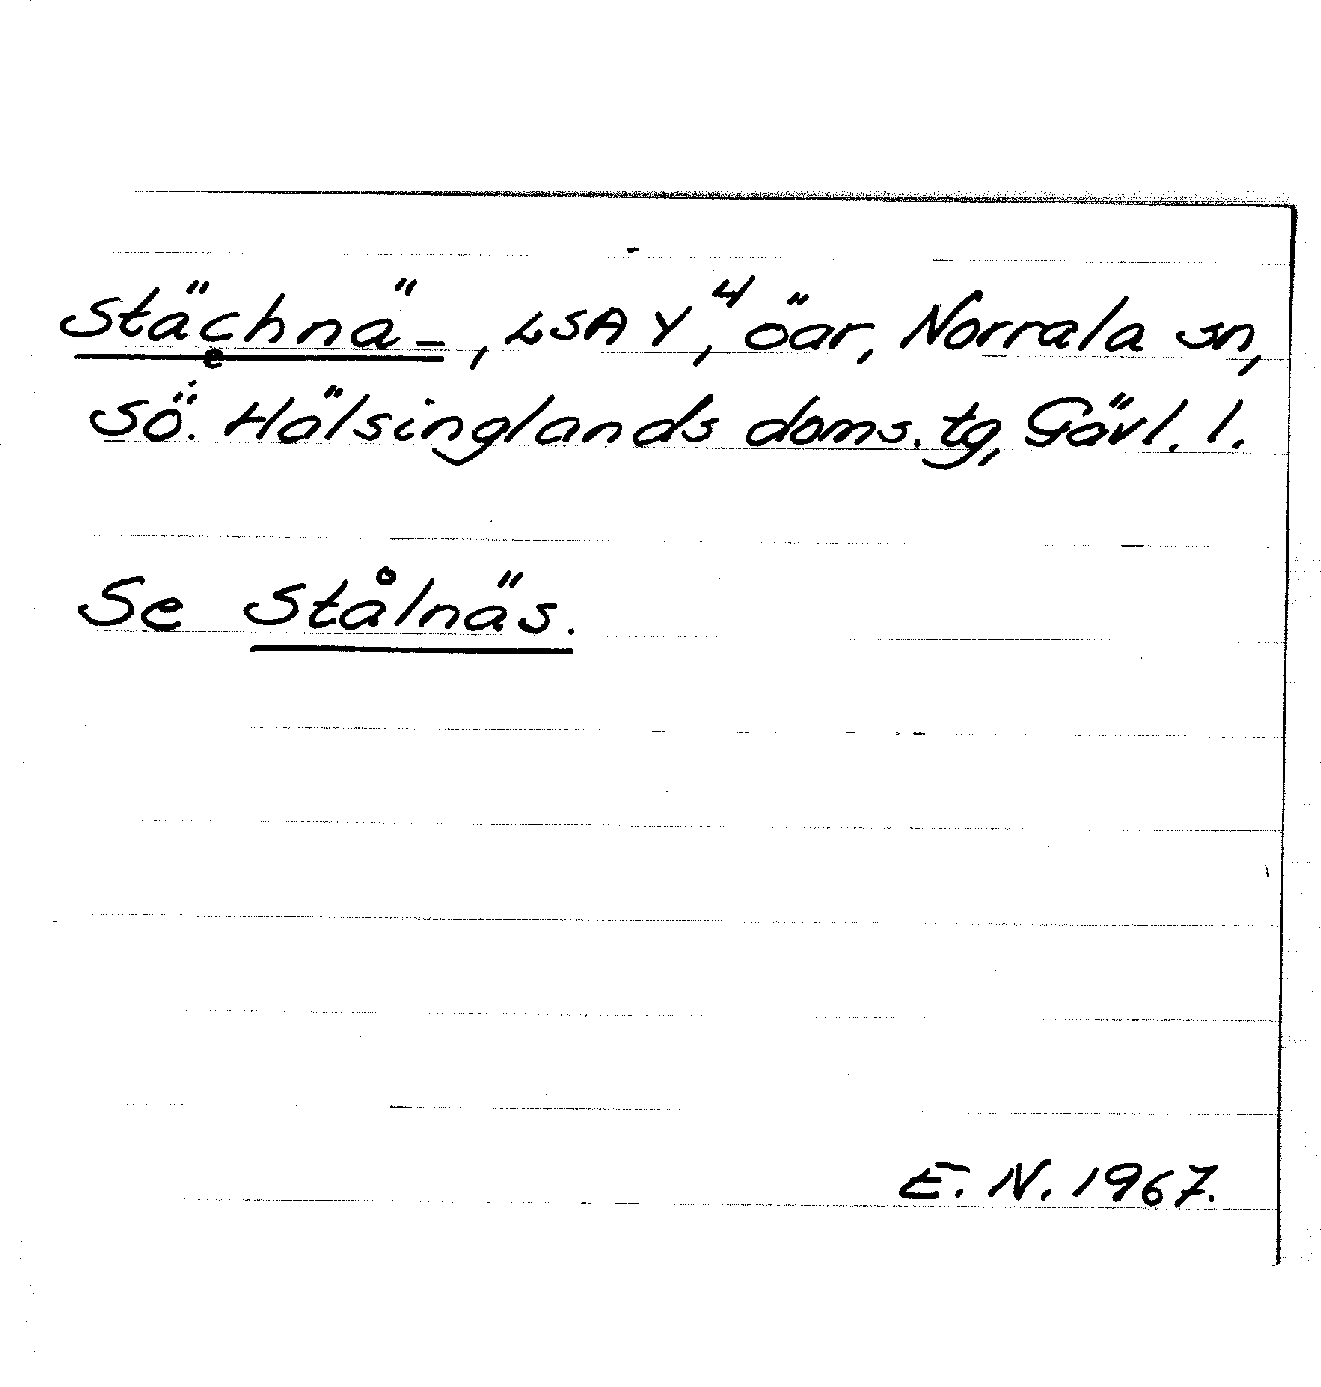 Stächnä-, LSA Y⁴, öar, Norrala sn,
Sö. Hälsinglands doms. tg, Gävl. l.
Se Stålnäs.
E. N. 1967.